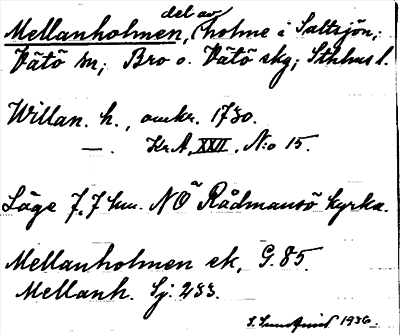 del av
Mellanholmen, (holme i Saltsjön;
Vätö sn; Bro o. Vätö skg; Sthlms l.
Willan. h., omkr. 1730.
— . Kr A, XXII, No 15.
Läge 7,7 km. NÖ Rådmansö kyrka.
Mellanholmen ek. G. 85.
Mellanh. Sj. 233.
1936.